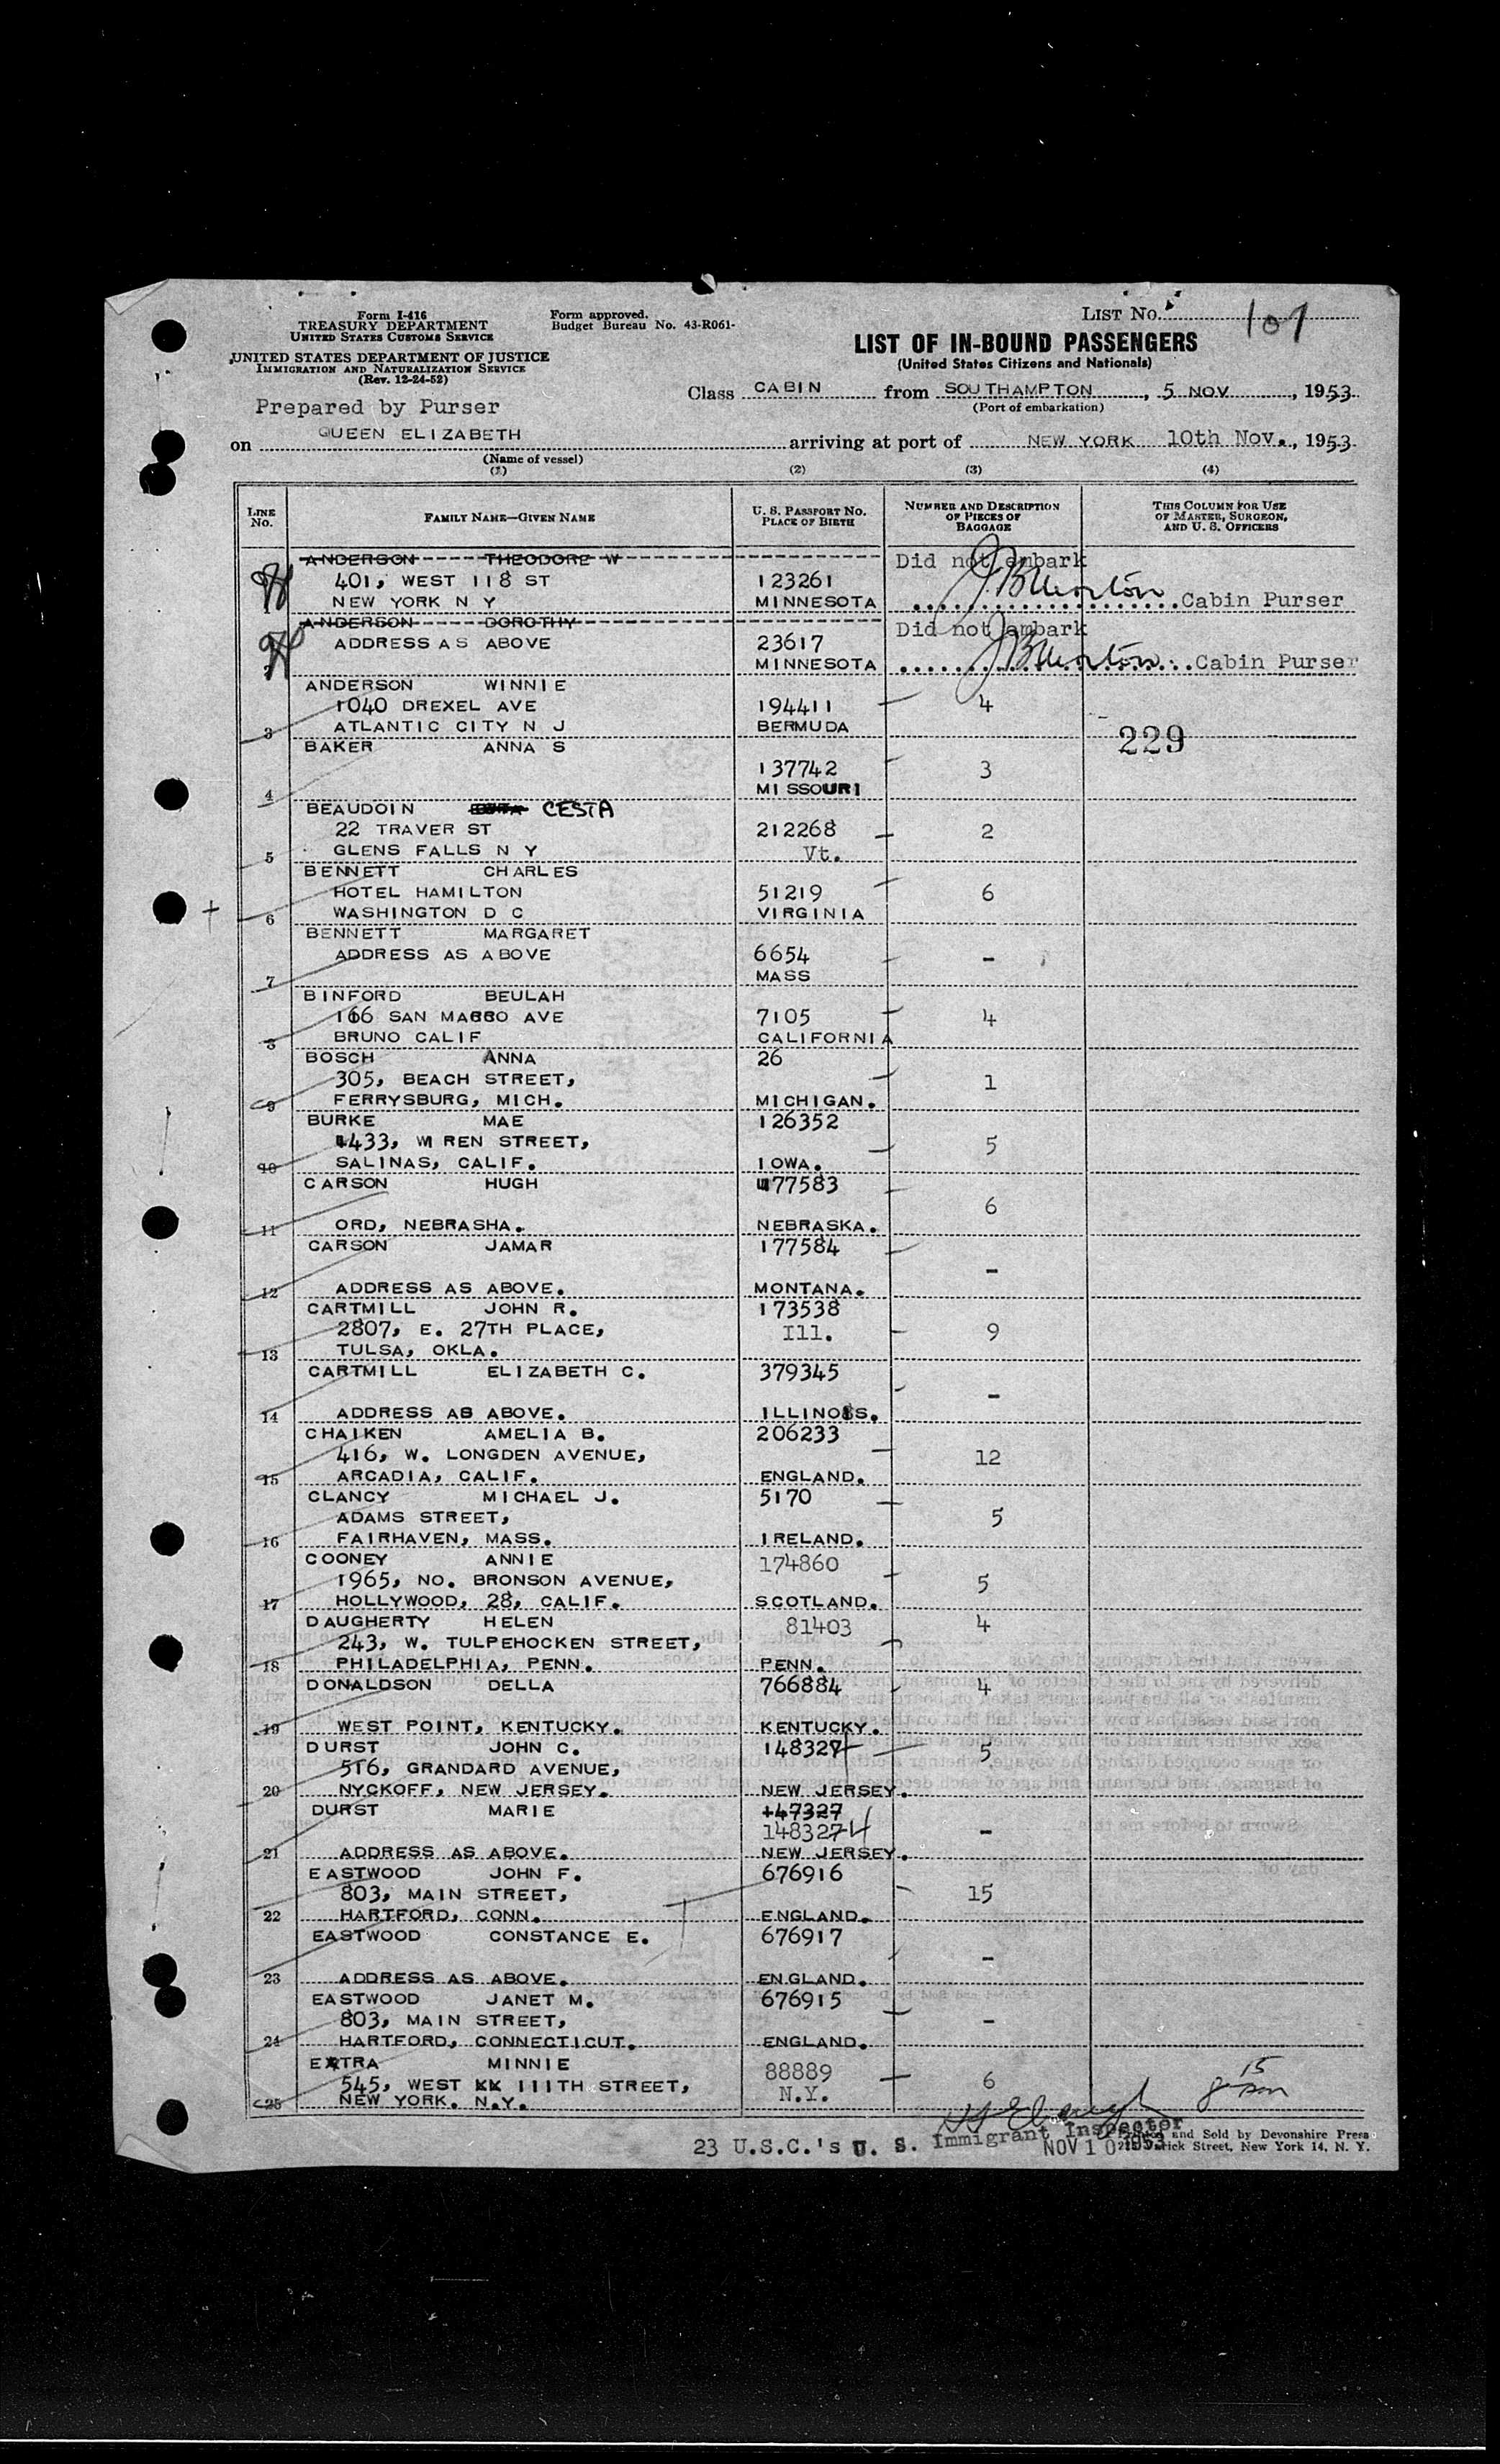 Form I-416
TREASURY DEPARTMENT
UNITED STATES CUSTOMS SERVICE
UNITED STATES DEPARTMENT OF JUSTICE
IMMIGRATION AND NATURALIZATION SERVICE
(Rev. 12-24-52)
Form approved.
Budget Bureau No. 43-R061-
LIST No. 101
LIST OF IN-BOUND PASSENGERS
(United States Citizens and Nationals)
Class CABIN from SOUTHAMPTON, 5 NOV, 1953
(Port of embarkation)
Prepared by Purser
on QUEEN ELIZABETH arriving at port of NEW YORK 10th Nov., 1953
(Name of vessel)
(1) (2) (3) (4)
LINE No. FAMILY NAME—GIVEN NAME U. S. PASSPORT NO. PLACE OF BIRTH NUMBER AND DESCRIPTION OF PIECES OF BAGGAGE THIS COLUMN FOR USE OF MASTER, SURGEON, AND U. S. OFFICERS
ANDERSON THEODORE W Did not embark
401, WEST 118 ST 123261
NEW YORK N Y MINNESOTA Cabin Purser
ANDERSON DOROTHY Did not embark
ADDRESS AS ABOVE 23617
2 MINNESOTA Cabin Purser
ANDERSON WINNIE
1040 DREXEL AVE 194411 4
3 ATLANTIC CITY N J BERMUDA
229
BAKER ANNA S
137742 3
4 MISSOURI
BEAUDOIN CESTA
22 TRAVER ST 212268 2
5 GLENS FALLS N Y Vt.
BENNETT CHARLES
HOTEL HAMILTON 51219 6
6 WASHINGTON D C VIRGINIA
BENNETT MARGARET
ADDRESS AS ABOVE 6654 -
7 MASS
BINFORD BEULAH
166 SAN MARCO AVE 7105 4
8 BRUNO CALIF CALIFORNIA
BOSCH ANNA 26
305, BEACH STREET, 1
9 FERRYSBURG, MICH. MICHIGAN.
BURKE MAE 126352
433, WIREN STREET, 5
10 SALINAS, CALIF. IOWA.
CARSON HUGH 177583
6
11 ORD, NEBRASHA. NEBRASKA.
CARSON JAMAR 177584
-
12 ADDRESS AS ABOVE. MONTANA.
CARTMILL JOHN R. 173538
2807, E. 27TH PLACE, Ill. 9
13 TULSA, OKLA.
CARTMILL ELIZABETH C. 379345
-
14 ADDRESS AS ABOVE. ILLINOIS.
CHAIKEN AMELIA B. 206233
416, W. LONGDEN AVENUE, 12
15 ARCADIA, CALIF. ENGLAND.
CLANCY MICHAEL J. 5170
ADAMS STREET, 5
16 FAIRHAVEN, MASS. IRELAND.
COONEY ANNIE 174860
1965, NO. BRONSON AVENUE, 5
17 HOLLYWOOD, 28, CALIF. SCOTLAND.
DAUGHERTY HELEN 81403 4
243, W. TULPEHOCKEN STREET,
18 PHILADELPHIA, PENN. PENN.
DONALDSON DELLA 766884 4
19 WEST POINT, KENTUCKY. KENTUCKY.
DURST JOHN C. 148327 5
516, GRANDARD AVENUE,
20 NYCKOFF, NEW JERSEY. NEW JERSEY.
DURST MARIE 147327
148327 -
21 ADDRESS AS ABOVE. NEW JERSEY.
EASTWOOD JOHN F. 676916
803, MAIN STREET, 15
22 HARTFORD, CONN. ENGLAND.
EASTWOOD CONSTANCE E. 676917
-
23 ADDRESS AS ABOVE. ENGLAND.
EASTWOOD JANET M. 676915
803, MAIN STREET, -
24 HARTFORD, CONNECTICUT. ENGLAND.
EXTRA MINNIE 88889
545, WEST 111TH STREET, N.Y. 6
25 NEW YORK. N.Y.
15
23 U.S.C.'s U. S. Immigrant Inspector
NOV 10 1953
and Sold by Devonshire Press
Street, New York 14, N. Y.